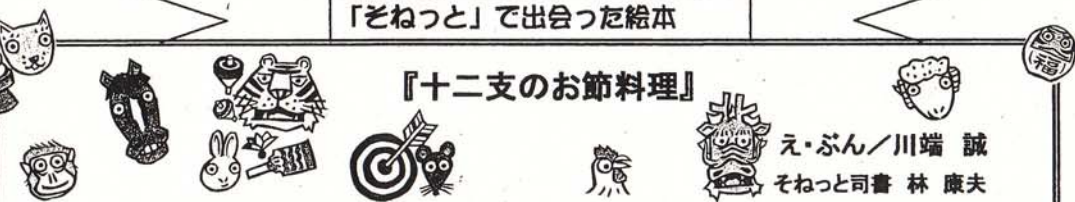 「そねっと」で出会った絵本
『十二支のお節料理』
え・ぶん／川端 誠
そねっと司書 林 康夫
福